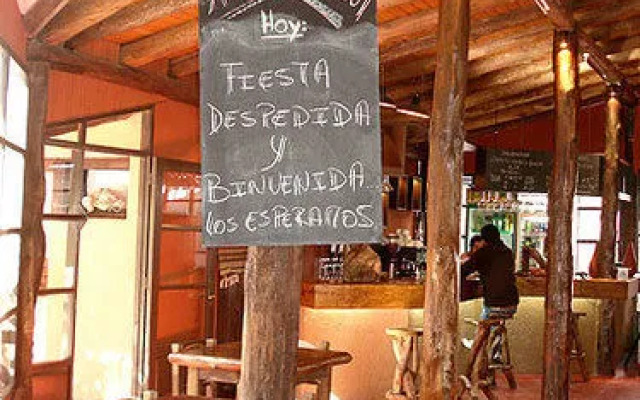 Hoy:
FIESTA
DESPEDIDA
Y
BINVENIDA...
LOS ESPERAMOS